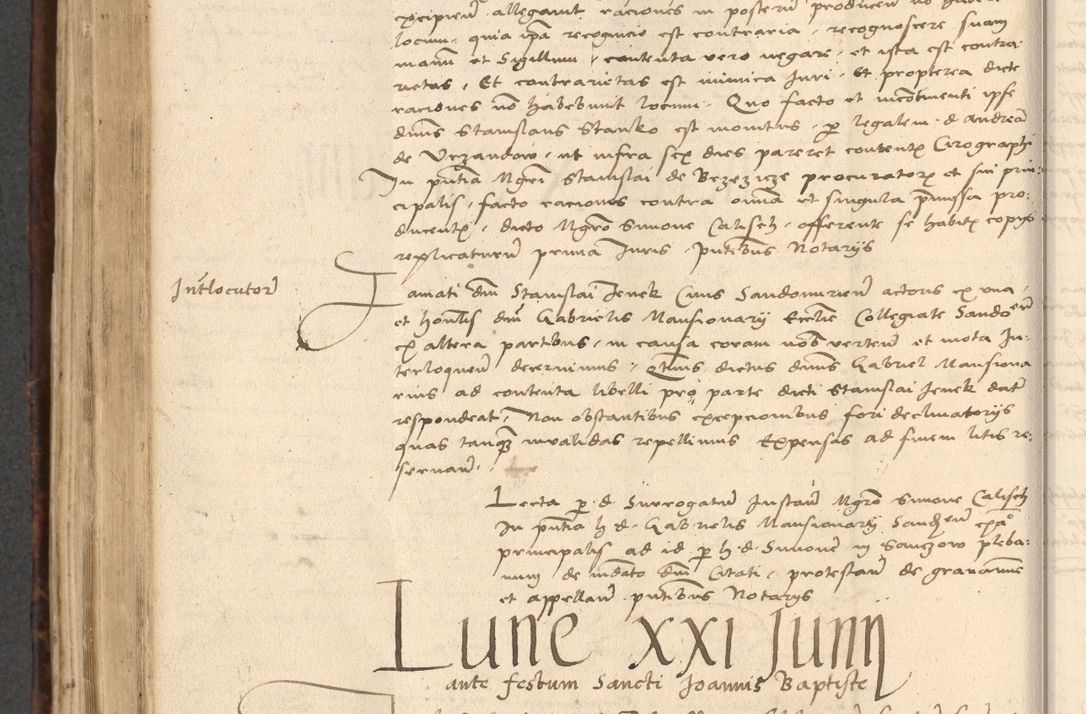 excipien allegavit raciones in posterum producen no habere
locum, quia ipa recognicio est contraria, recognoscere suam
manu et Sigillum, contenta vero negare, et ista est contra
rietas, Et contrarietas est inimica Juri, Et propterea dicte
raciones no habebunt locum. Quo facto et incontinenti ipse
dnus Stanislaus Stanko est monitus, p legalem d Andrea
de Vrzandow, ut infra sex dies pareret contentx Cirographi
In pntia Mgri Stanislai de Brzezicze procuratorx et sui prin:
cipalis, facto raciones contra oma et singula pmissa pro:
ducentx, dicto Mgro Simone Calisch, offerente se habitx copijs
replicaturu prima Juris. Pntibus Notarijs
Intlocutor
Famati dni Stanislai Jenek Civis Sandomirien actoris ex una,
et Honlis dni Gabrielis Mansionarij Ecclie Collegiate Sandoen
ex altera partibus, in causa coram nob verten et mota In:
terloquen decernimus, qtenus dictus dnus Gabriel Mansiona
rius ad contenta libelli pro parte dicti Stanislai Jenek dat
respondeat, Non obstantibus excepcionibus fori declinatorijs
quas tanqz invalidas repellimus Expensas ad finem litis re:
servan.
Lecta p d Surrogatu Instan Mgro Simone Calisch
In pntia h d Gabrielis Mansionarij Sandzen
principalis ad id p h d Simone in Samzow pleba:
num de mdato dni Citati, protestan de gravamine
et appellan. pntibus Notarijs
Lune XXI Junij
ante festum Sancti Joannis Baptiste